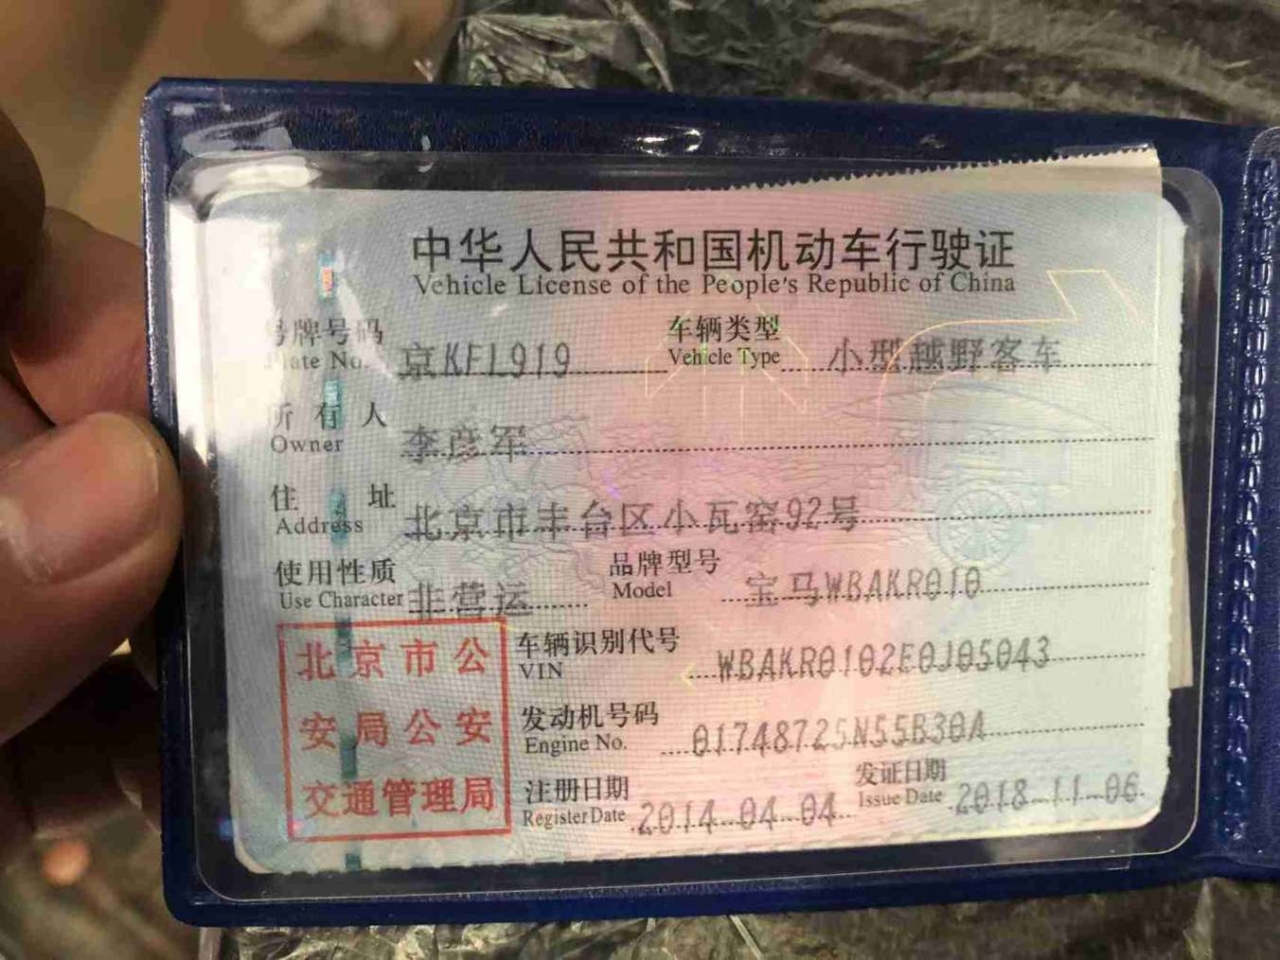 中华人民共和国机动车行驶证
Vehicle License of the People's Republic of China
号牌号码 京KFL919 车辆类型 小型越野客车
Plate No. Vehicle Type
所有人 李彦军
Owner
住址 北京市丰台区小瓦窑92号
Address
使用性质 非营运 品牌型号 宝马WBAKR010
Use Character Model
车辆识别代号 WBAKR0102E0J05043
VIN
发动机号码 01748725N55B30A
Engine No.
注册日期 2014-04-04 发证日期 2018-11-06
Register Date Issue Date
北京市公
安局公安
交通管理局